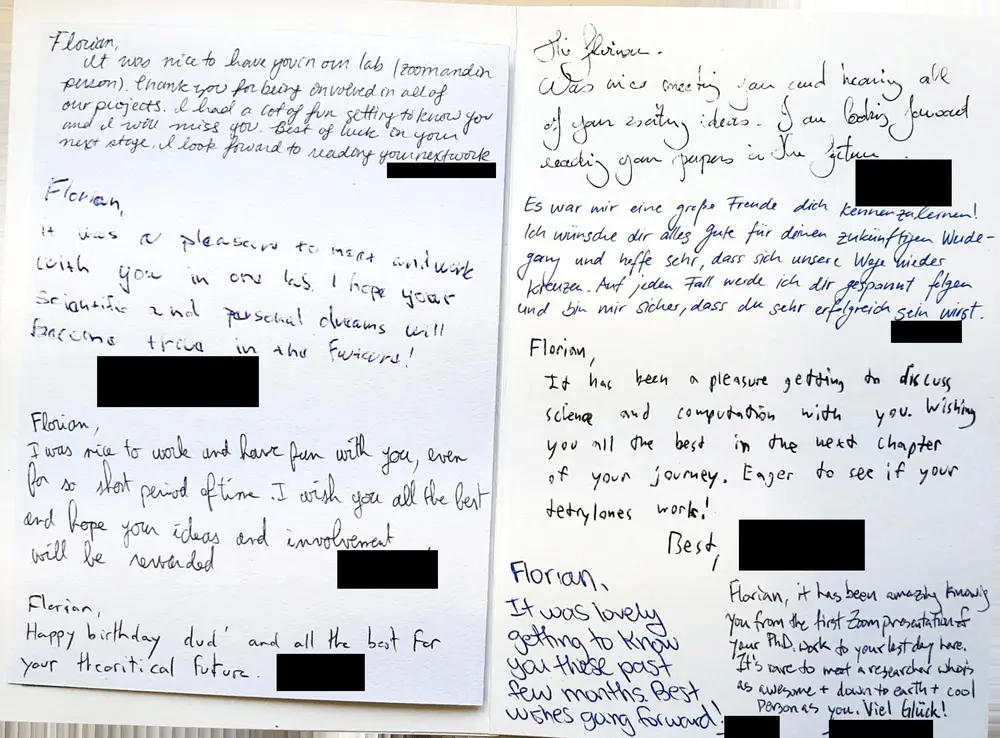 Florian,
It was nice to have you in our lab (zoom and in
person). Thank you for being involved in all of
our projects. I had a lot of fun getting to know you
and I will miss you. Best of luck in your
next stage. I look forward to reading your next work
Florian,
it was a pleasure to meet and work
with you in one lab. I hope your
scientific and personal dreams will
become true in the future!
Florian,
I was nice to work and have fun with you, even
for so short period of time. I wish you all the best
and hope your ideas and involvement
will be rewarded
Florian,
Happy birthday dud' and all the best for
your theoritical future.
Hi Florian.
Was nice meeting you and hearing all
of your exciting ideas. I am looking forward
reading your papers in the future.
Es war mir eine große Freude dich kennenzulernen!
Ich wünsche dir alles Gute für deinen zukünftigen Werde-
gang und hoffe sehr, dass sich unsere Wege wieder
kreuzen. Auf jeden Fall werde ich dir gespannt folgen
und bin mir sicher, dass du sehr erfolgreich sein wirst.
Florian,
It has been a pleasure getting to discuss
science and computation with you. Wishing
you all the best in the next chapter
of your journey. Eager to see if your
tetrylones work!
Best,
Florian,
It was lovely
getting to know
you these past
few months. Best
wishes going forward!
Florian, it has been amazing knowing
you from the first Zoom presentation of
your PhD. work to your last day here.
It's rare to meet a researcher who's
as awesome + down to earth + cool
person as you. Viel Glück!